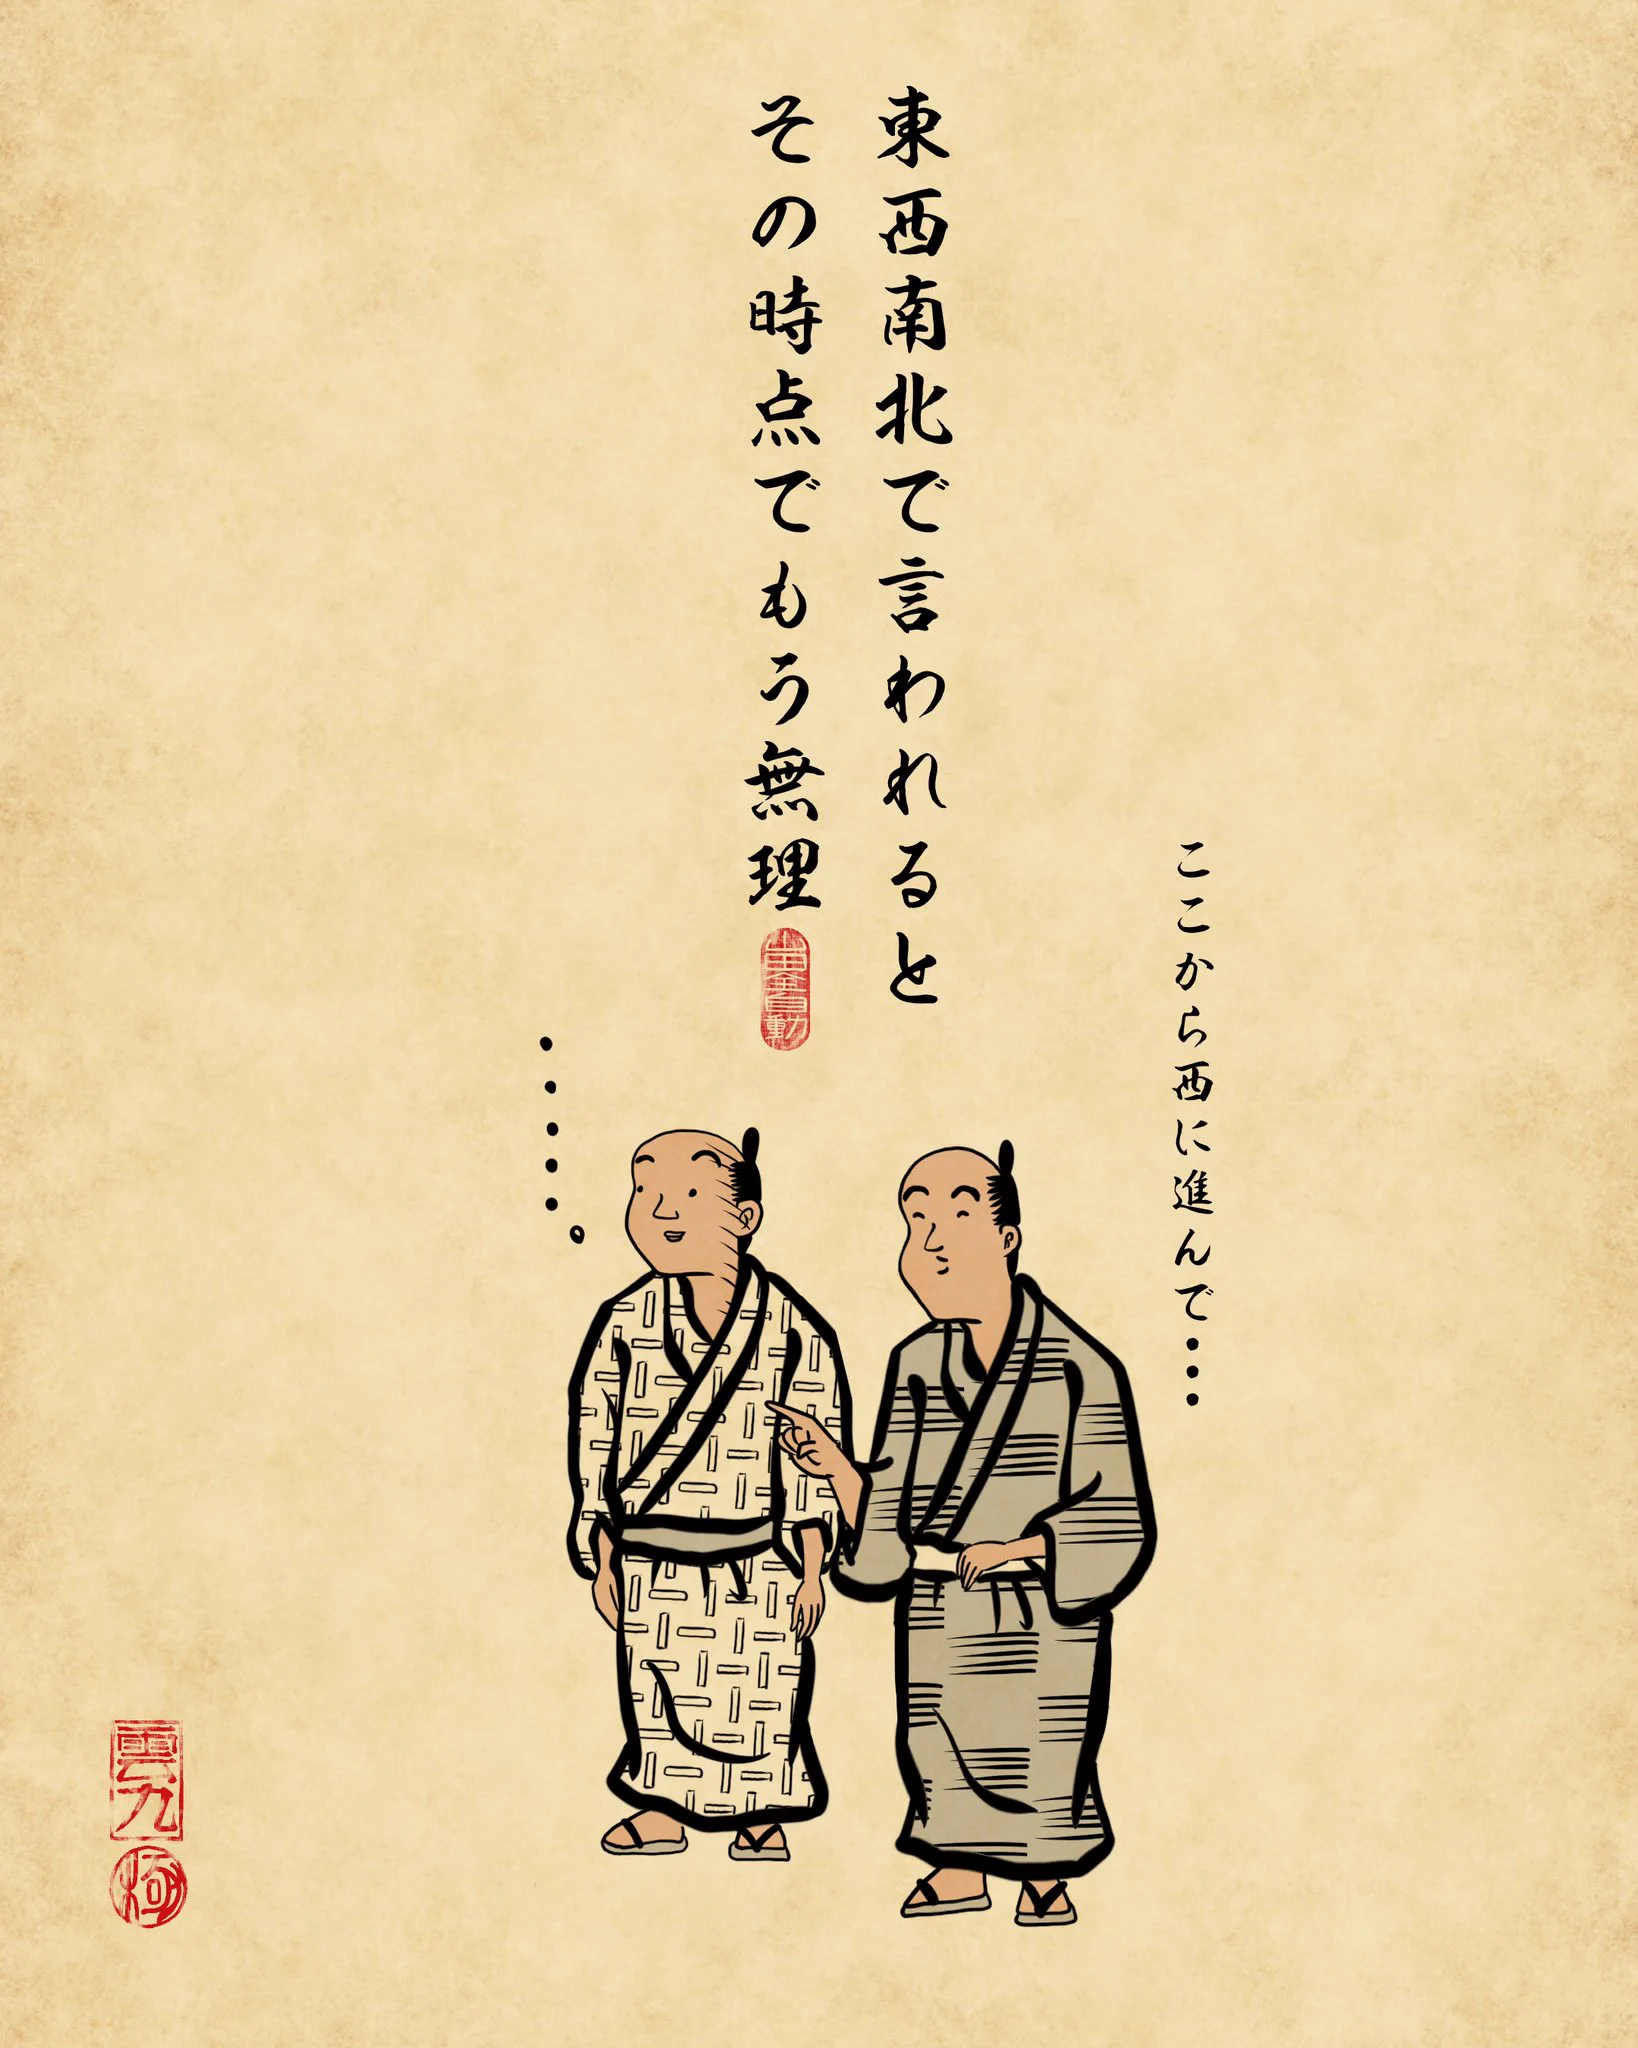 東西南北で言われると
その時点でもう無理
山田全自動
ここから西に進んで・・・
・・・・・。
雲九
極